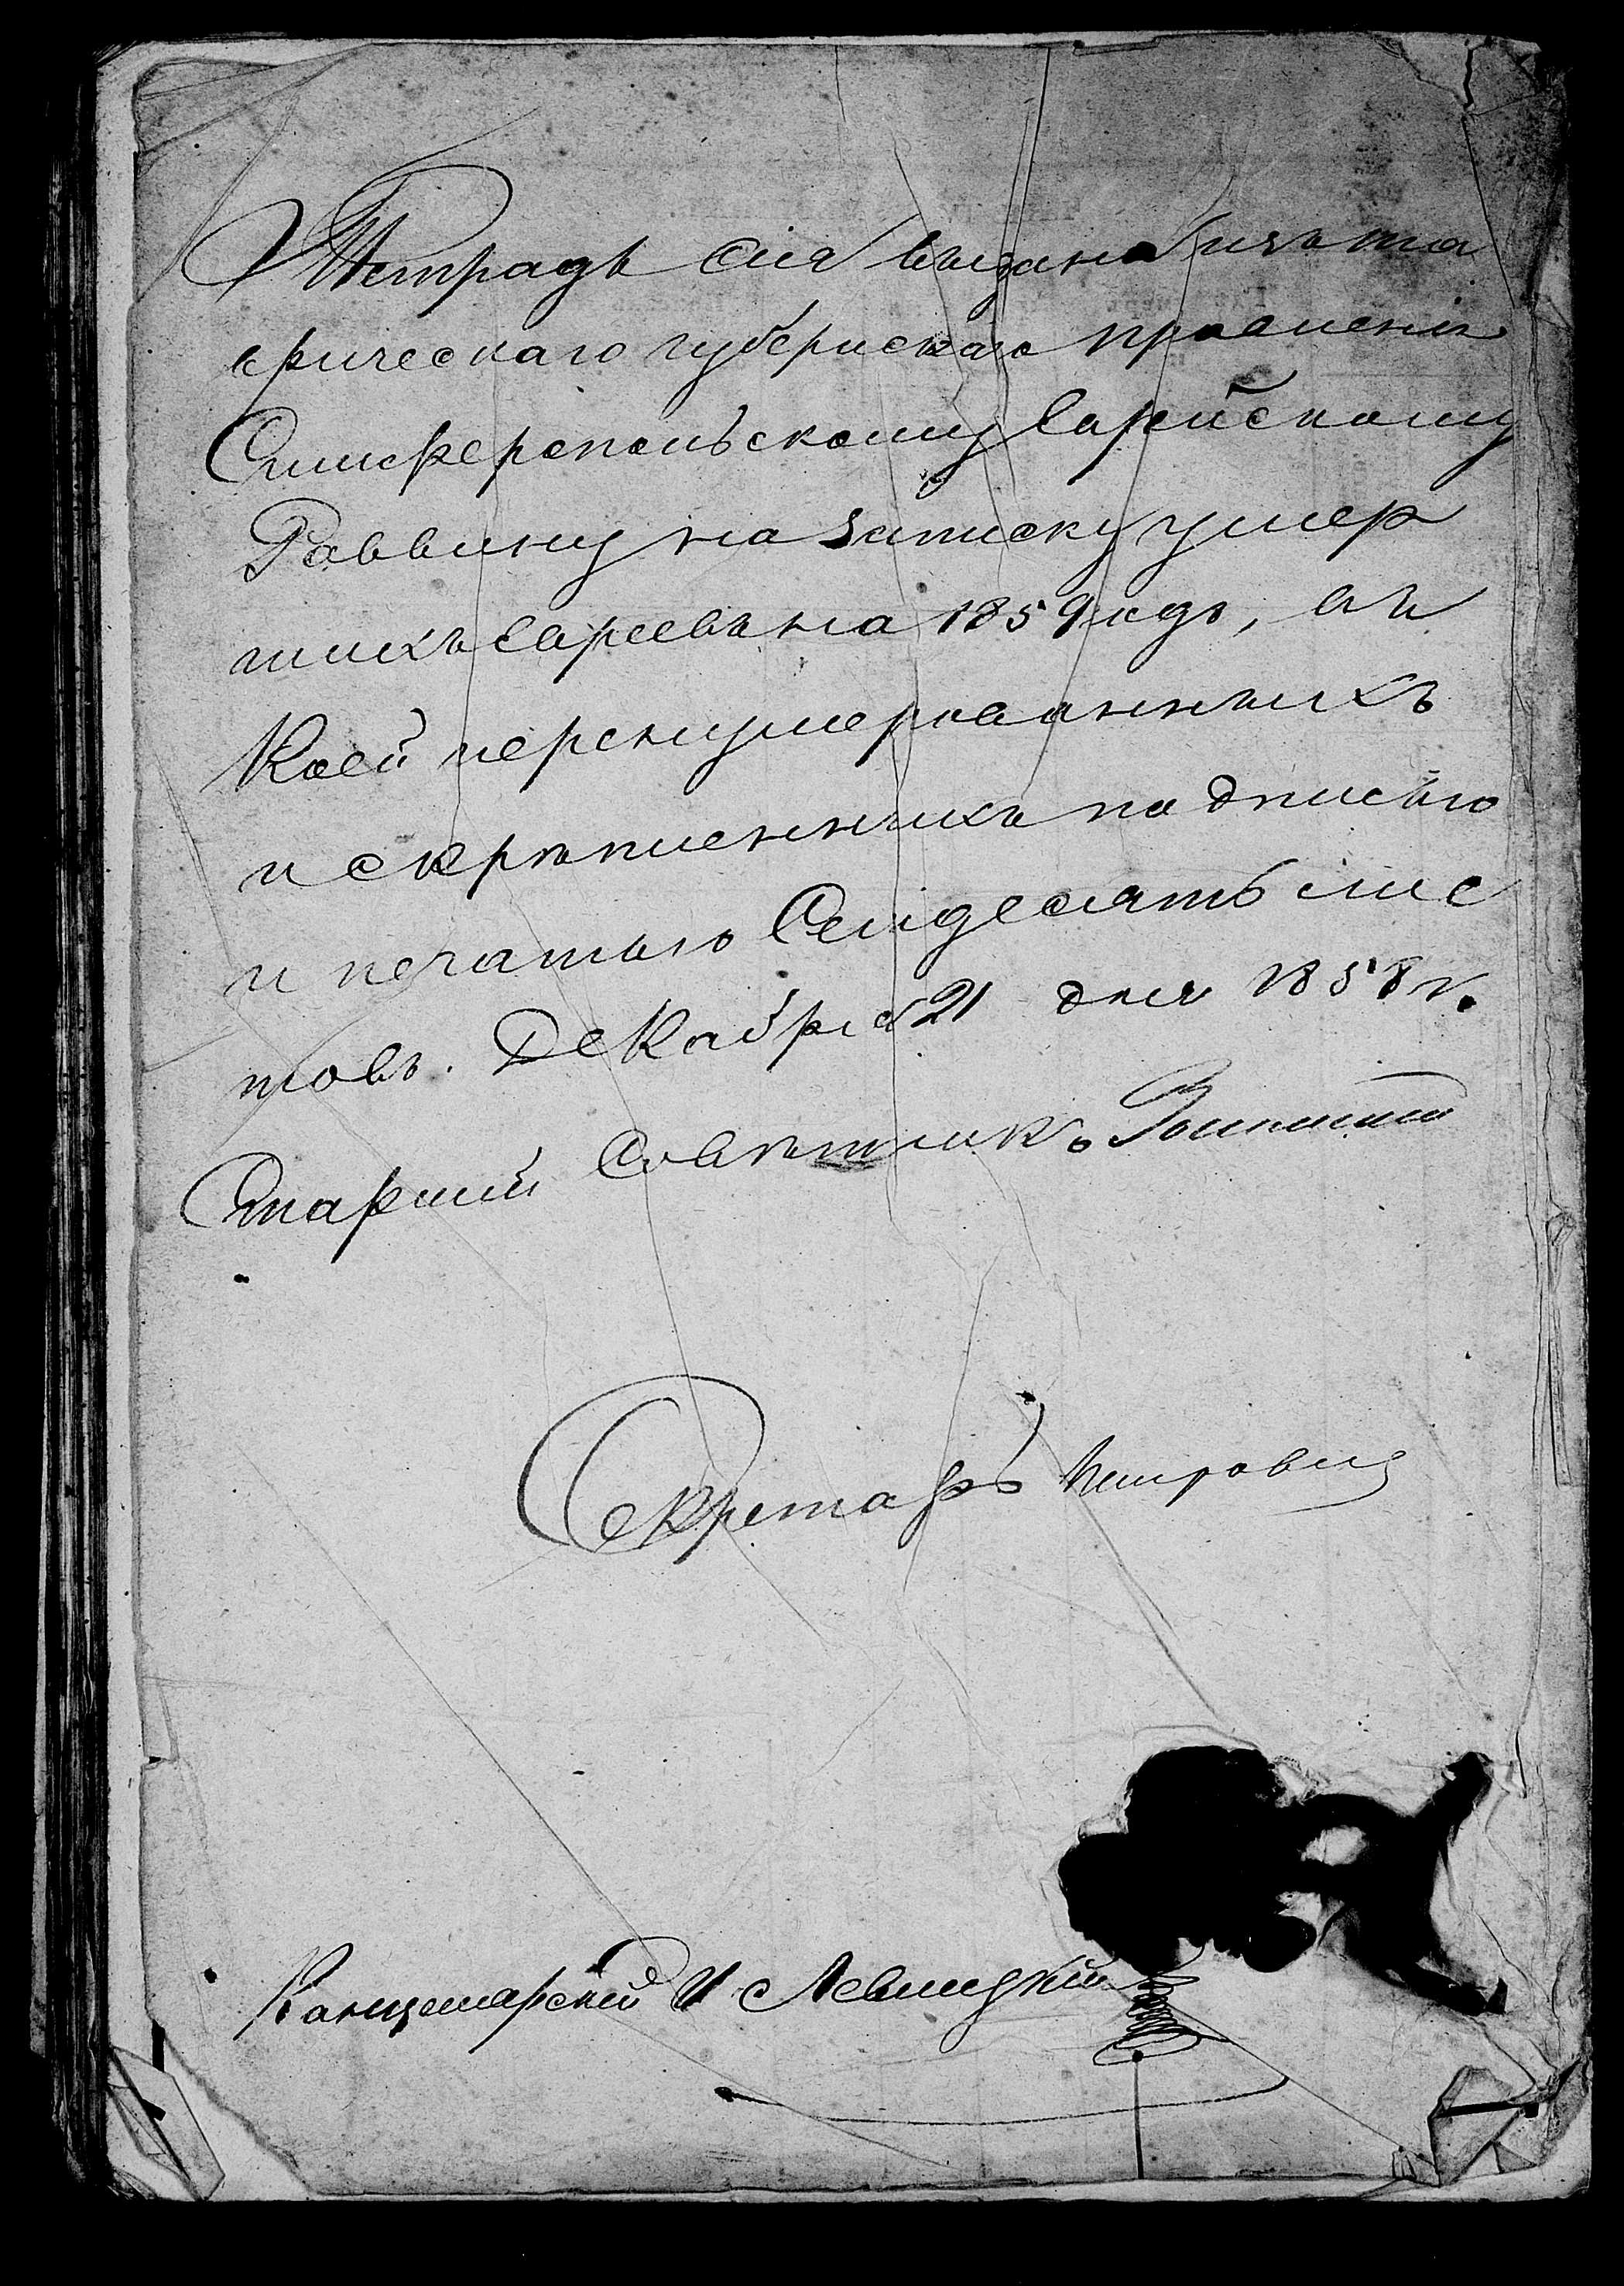 Тетрадь сія выдана изъ Тав
рическаго губернскаго правленія
Симферопольскому Еврейскому
Раввину на записку умер
шихъ Евреевъ на 1859 годъ, въ
Коей перенумерованныхъ
и скрѣпленныхъ подписью
и печатью Семдесятъ лис
товъ. Декабря 21 дня 1858 г.
Старшій Совѣтникъ
Секретарь
Канцелярскій И Левицкій